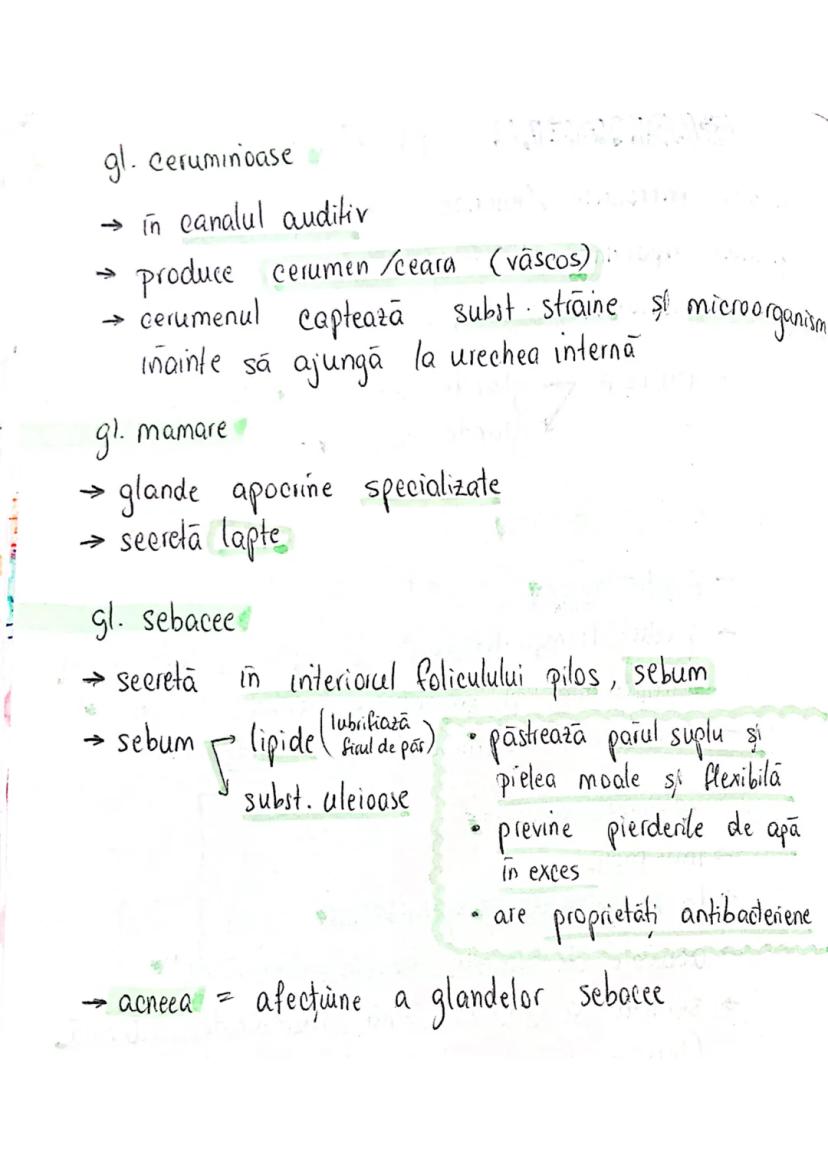 gl. ceruminoase
→ în canalul auditiv
→ produce cerumen/ceara (vâscos)
→ cerumenul captează subst. străine și microorganism
înainte să ajungă la urechea internă
gl. mamare
→ glande apocrine specializate
→ secretă lapte
gl. sebacee
→ secretă în interiorul foliculului pilos, sebum
→ sebum → lipide (lubrifiază firul de păr)
subst. uleioase
• păstrează parul suplu și
pielea moale și flexibilă
• previne pierderile de apă
în exces
• are proprietăți antibacteriene
→ acneea = afecțiune a glandelor sebacee